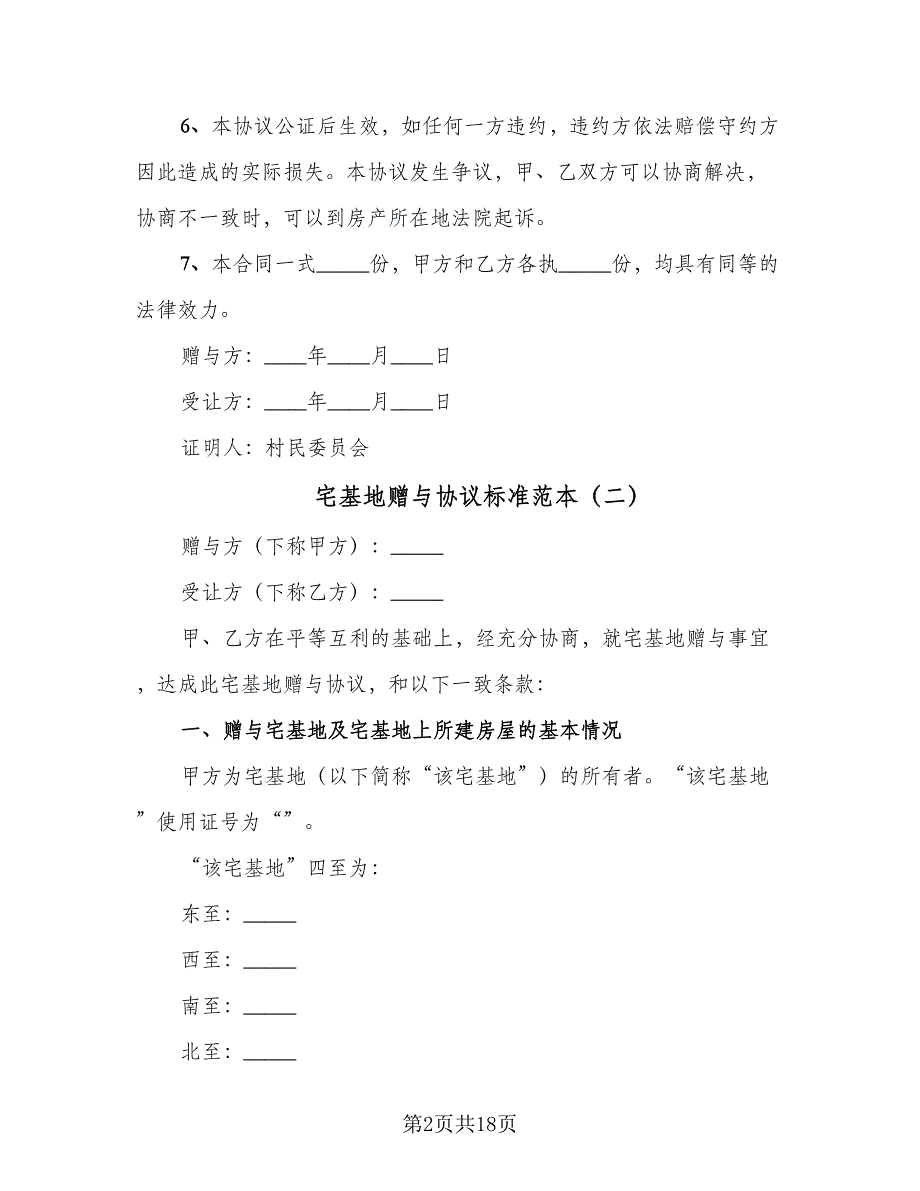 6、本协议公证后生效，如任何一方违约，违约方依法赔偿守约方
因此造成的实际损失。本协议发生争议，甲、乙双方可以协商解决，
协商不一致时，可以到房产所在地法院起诉。
7、本合同一式_____份，甲方和乙方各执_____份，均具有同等的
法律效力。
赠与方：____年____月____日
受让方：____年____月____日
证明人：村民委员会
宅基地赠与协议标准范本（二）
赠与方（下称甲方）：_____
受让方（下称乙方）：_____
甲、乙方在平等互利的基础上，经充分协商，就宅基地赠与事宜
，达成此宅基地赠与协议，和以下一致条款：
一、赠与宅基地及宅基地上所建房屋的基本情况
甲方为宅基地（以下简称“该宅基地”）的所有者。“该宅基地
”使用证号为“”。
“该宅基地”四至为：
东至：_____
西至：_____
南至：_____
北至：_____
第2页共18页